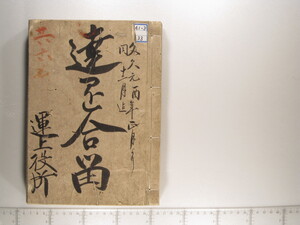 文久元酉年正月ゟ
同十二月迄
達問合留
運上役所